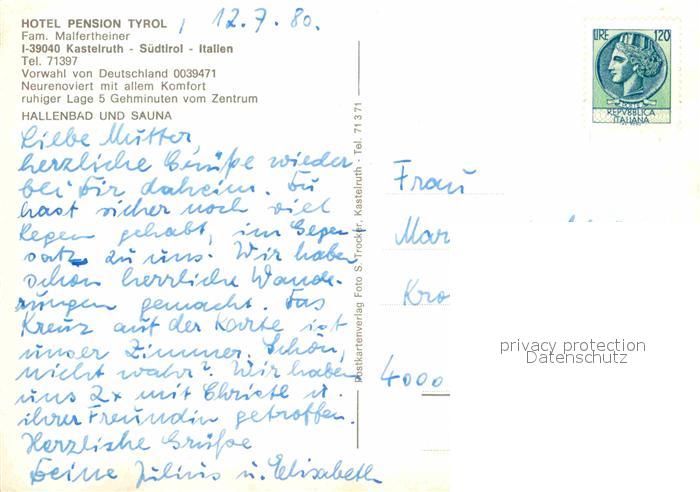 HOTEL PENSION TYROL , 12.7.80.
Fam. Malfertheiner
I-39040 Kastelruth - Südtirol - Italien
Tel. 71397
Vorwahl von Deutschland 0039471
Neurenoviert mit allem Komfort
ruhiger Lage 5 Gehminuten vom Zentrum
HALLENBAD UND SAUNA
Liebe Mutter,
herzliche Grüße wieder
bei Dir daheim. Du
hast sicher noch viel
Regen gehabt, im Gegen-
satz zu uns. Wir haben
schon herrliche Wande-
rungen gemacht. Das
Kreuz auf der Karte ist
unser Zimmer. Schön,
nicht wahr? Wir haben
uns 2x mit Christl u.
ihrer Freundin getroffen.
Herzliche Grüße
Deine Julius u. Elisabeth
Postkartenverlag Foto S. Trocker, Kastelruth - Tel. 71371
LIRE 120
POSTE
REPVBBLICA
ITALIANA
Frau
Mar
Kro
4000
privacy protection
Datenschutz